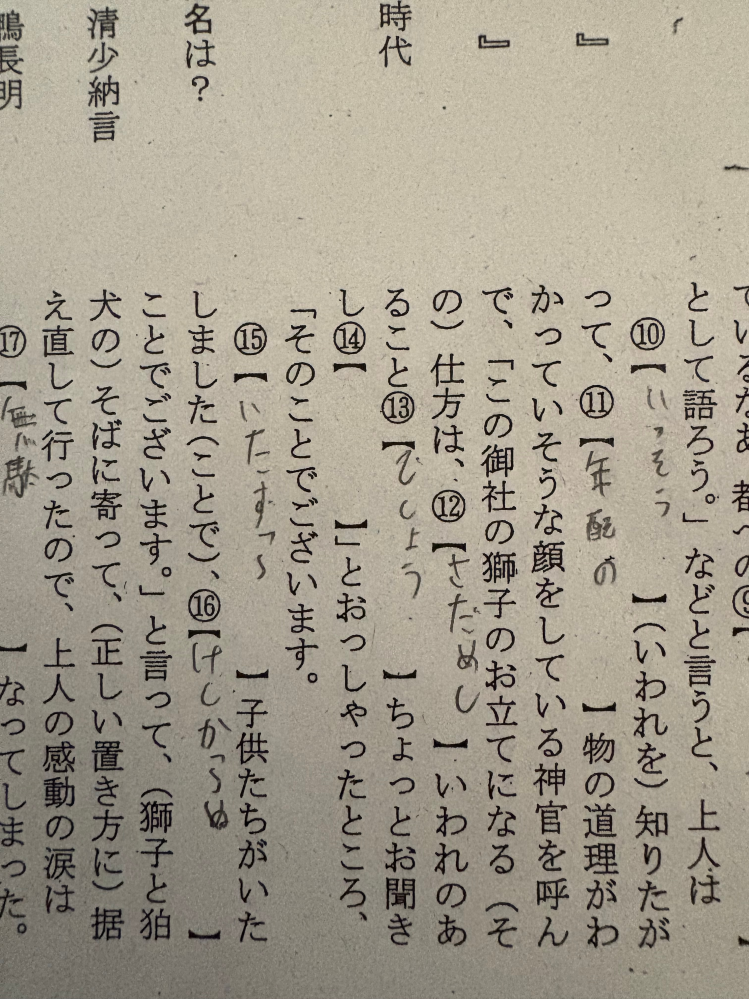 』
』
時代
名は？
清少納言
鴨長明
ているなあ。都への⑨【　】
として語ろう。」などと言うと、上人は
⑩【いっそう　】（いわれを）知りたが
って、⑪【年配の　】物の道理がわ
かっていそうな顔をしている神官を呼ん
で、「この御社の獅子のお立てになる（そ
の）仕方は、⑫【さだめし　】いわれのあ
ること⑬【でしょう　】ちょっとお聞き
し⑭【　】」とおっしゃったところ、
「そのことでございます。
⑮【いたずら　】子供たちがいた
しました（ことで）、⑯【けしからぬ　】
ことでございます。」と言って、（獅子と狛
犬の）そばに寄って、（正しい置き方に）据
え直して行ったので、上人の感動の涙は
⑰【無駄　】なってしまった。